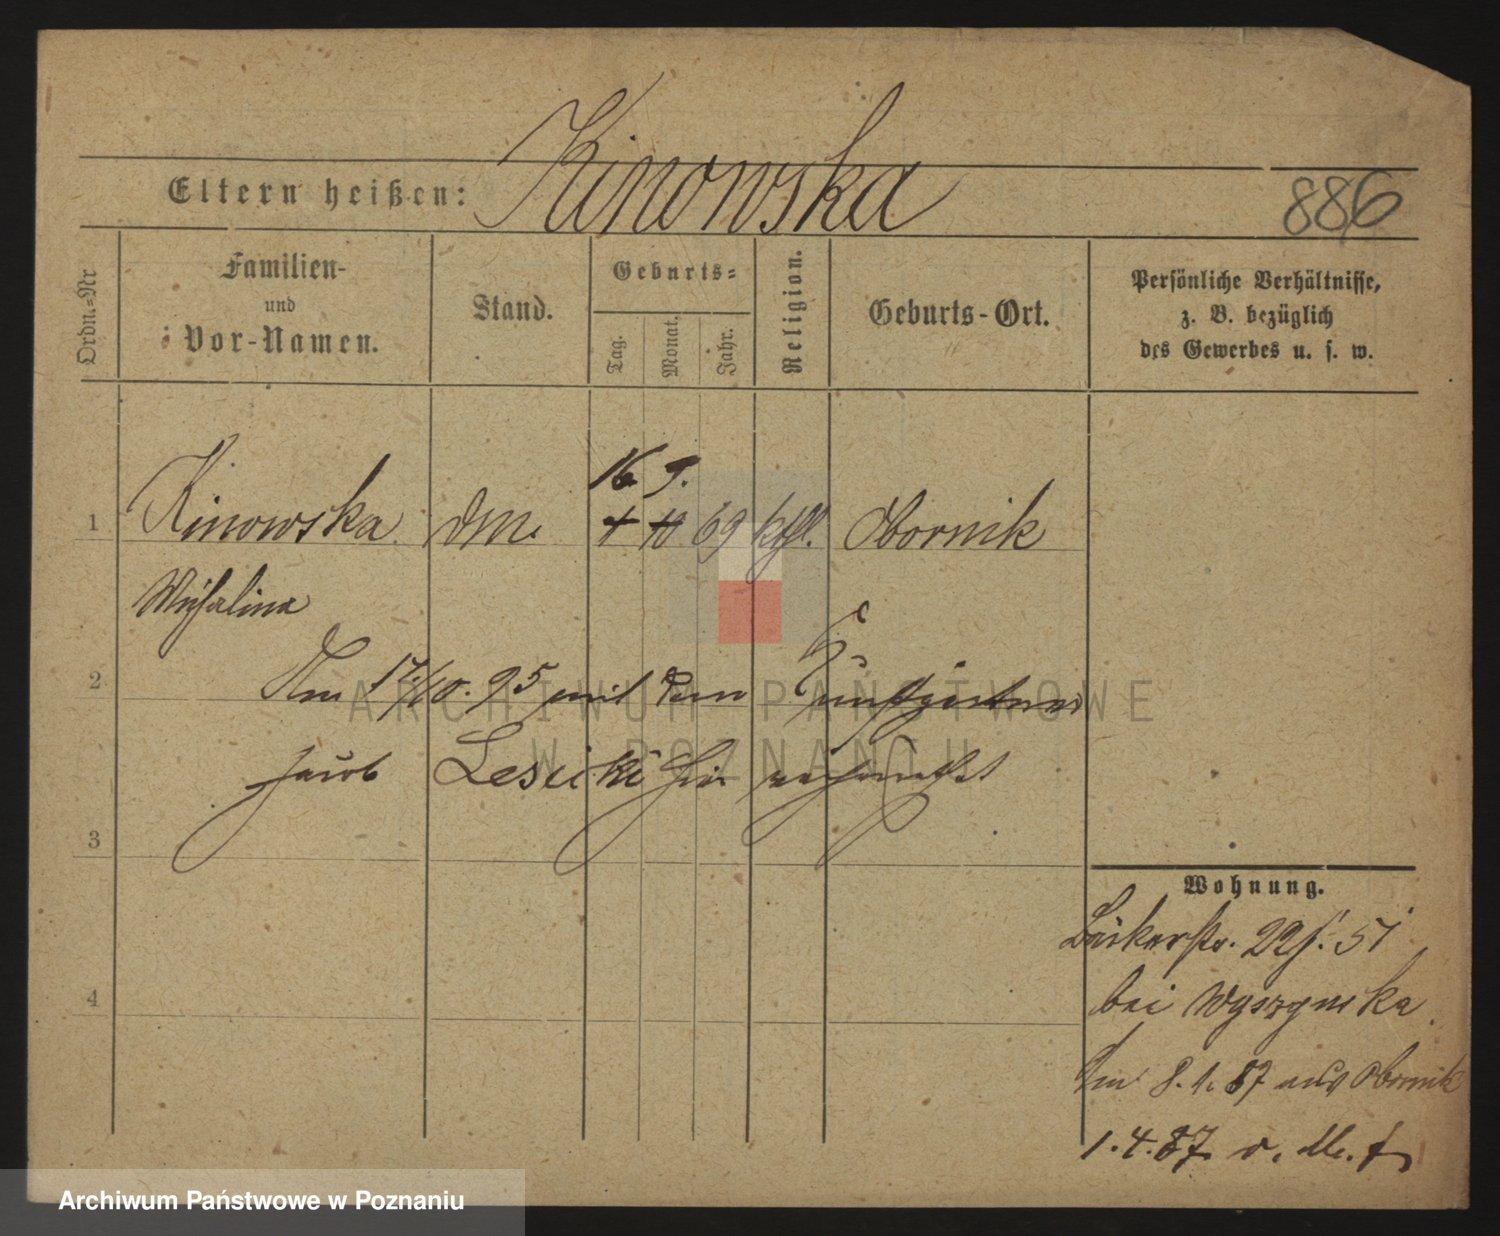 Kinowska
Eltern heißen:
886
Ordn.=Nr
Familien-
und
Vor-Namen.
Stand.
Geburts=
Tag.
Monat.
Jahr.
Religion.
Geburts-Ort.
Persönliche Verhältnisse,
z. B. bezüglich
des Gewerbes u. s. w.
16. 9.
1 Kinowska 69 kthl. Obornik
Michalina
2 Am 17/10. 95 mit dem Kunstgärtner
ARCHIWUM PAŃSTWOWE
W POZNANIU
Jacob Lesicki hier
3
Wohnung.
Bäckerstr. 51
bei Wyszynska
4
Am 8.1.87 aus Obornik
1.4.87
Archiwum Państwowe w Poznaniu